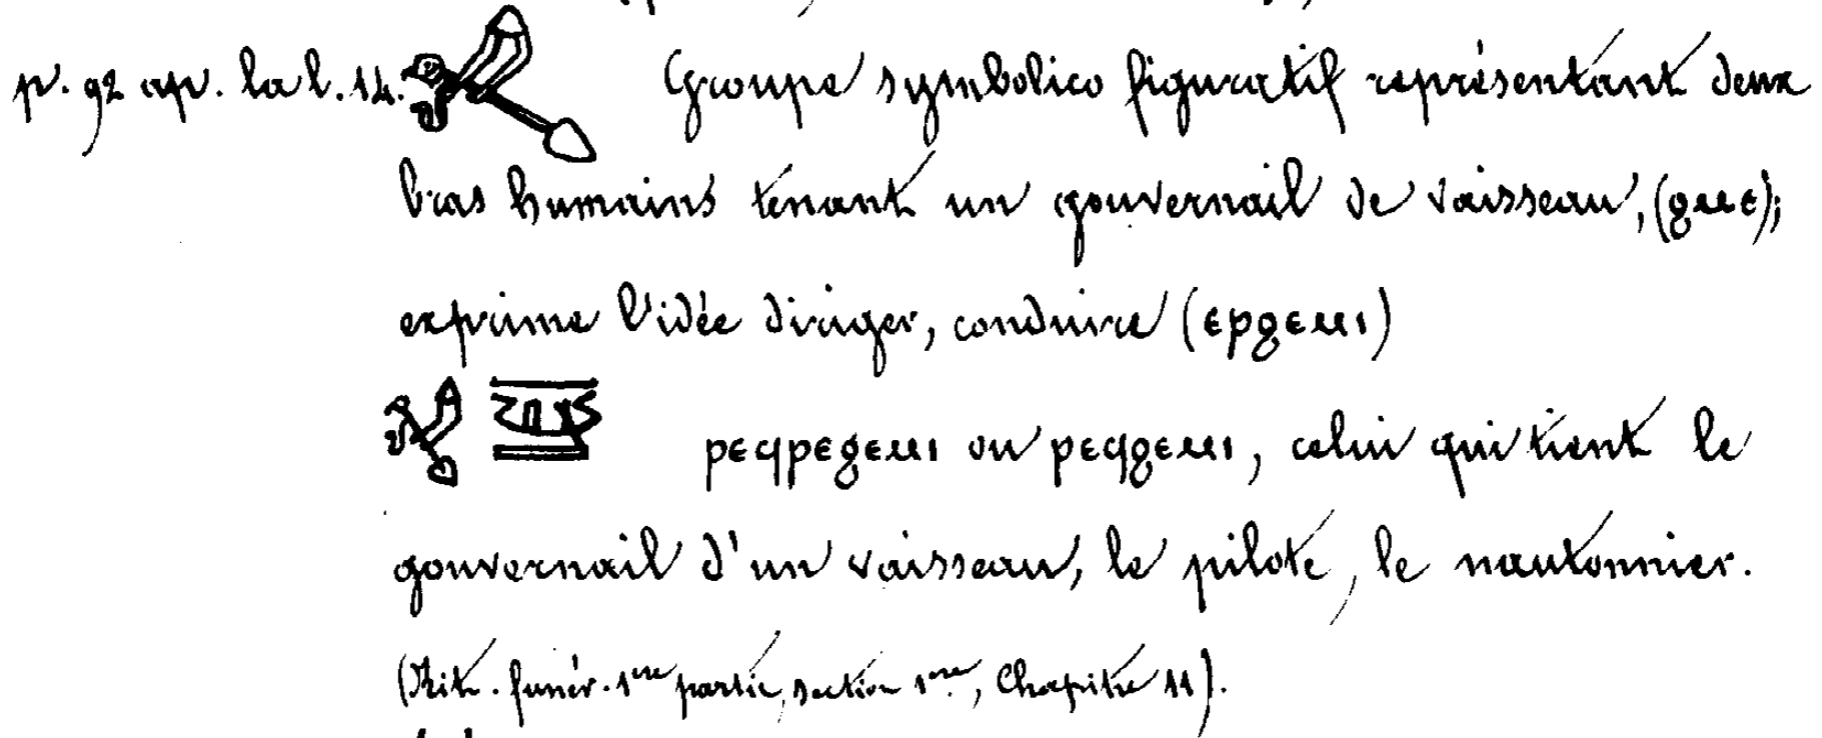 p. 92 ap. la l. 14. Groupe symbolico figuratif représentant deux
bras humains tenant un gouvernail de vaisseau, (ϩⲙⲉ);
exprime l'idée diriger, conduire (ⲉⲣϩⲉⲙⲓ)
ⲣⲉϥⲣⲉϩⲉⲙⲓ ou ⲣⲉϥϩⲉⲙⲓ, celui qui tient le
gouvernail d'un vaisseau, le pilote, le nautonnier.
(Rit. funér. 1ere partie, section 1ere, Chapitre 11).